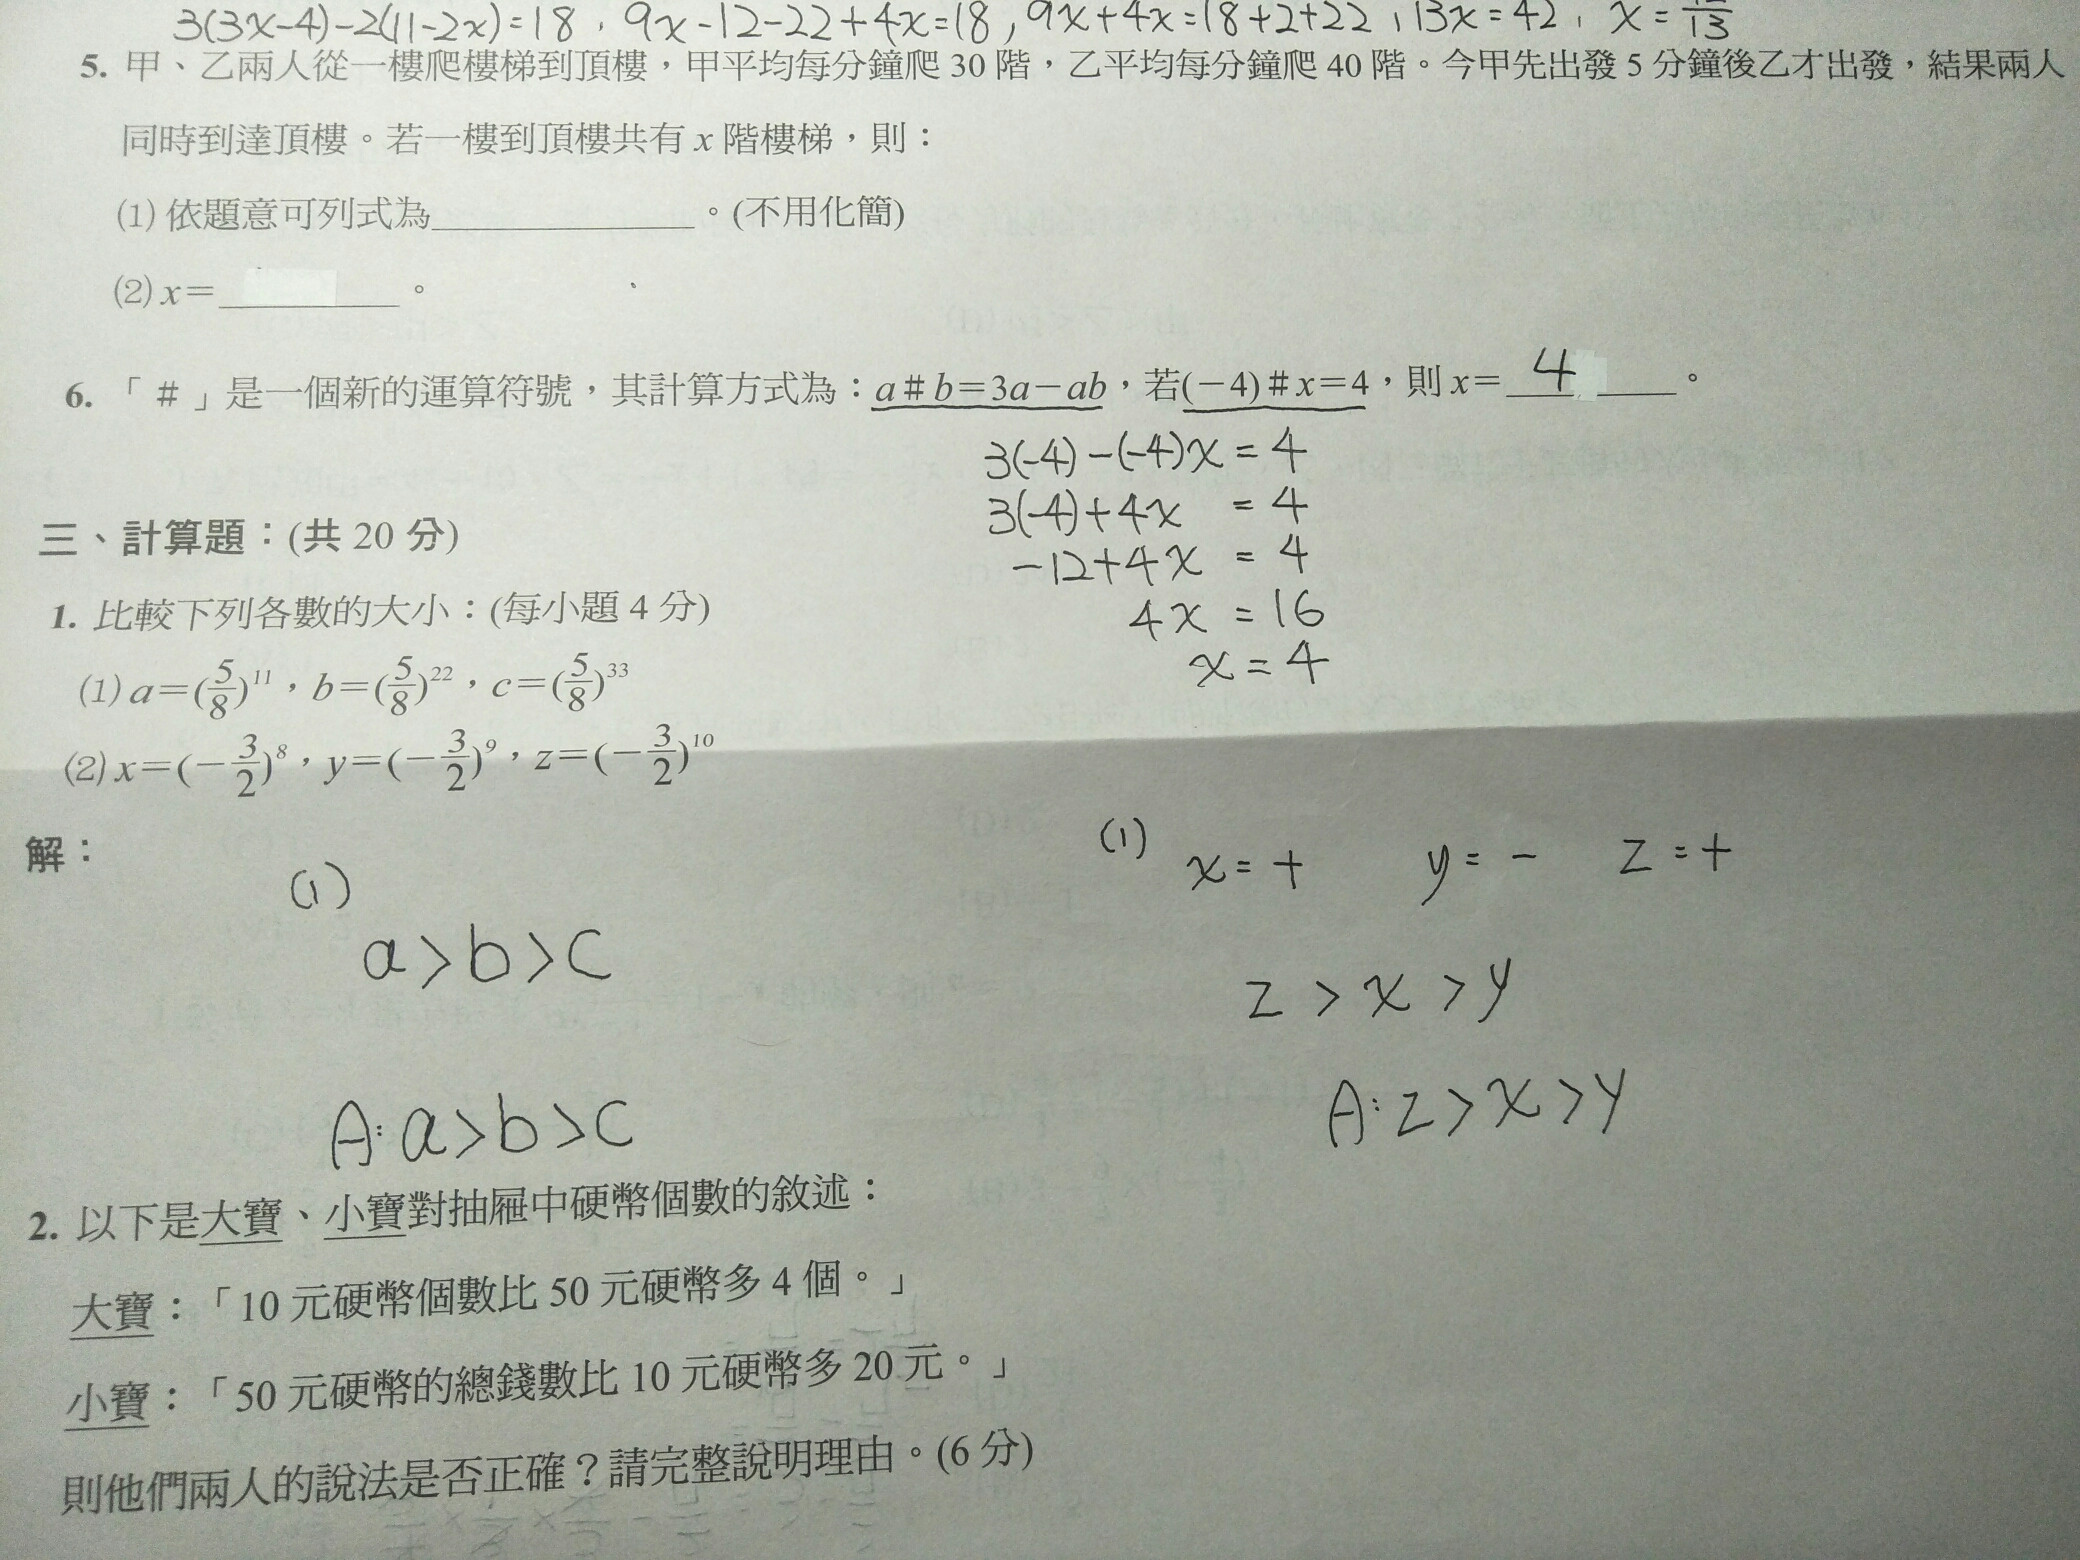 3(3x-4)-2(11-2x)=18, 9x-12-22+4x=18, 9x+4x=18+2+22, 13x=42, x=42/13
5. 甲、乙兩人從一樓爬樓梯到頂樓，甲平均每分鐘爬 30 階，乙平均每分鐘爬 40 階。今甲先出發 5 分鐘後乙才出發，結果兩人
同時到達頂樓。若一樓到頂樓共有 x 階樓梯，則：
(1) 依題意可列式為____________。(不用化簡)
(2) x＝________。
6. 「＃」是一個新的運算符號，其計算方式為：a＃b＝3a－ab，若(－4)＃x＝4，則 x＝ 4 。
3(-4)-(-4)x=4
3(-4)+4x=4
-12+4x=4
4x=16
x=4
三、計算題：(共 20 分)
1. 比較下列各數的大小：(每小題 4 分)
(1) a＝(5/8)^11，b＝(5/8)^22，c＝(5/8)^33
(2) x＝(－3/2)^8，y＝(－3/2)^9，z＝(－3/2)^10
解：
(1)
a>b>c
A:a>b>c
(1) x=+ y=- z=+
z>x>y
A:z>x>y
2. 以下是大寶、小寶對抽屜中硬幣個數的敘述：
大寶：「10 元硬幣個數比 50 元硬幣多 4 個。」
小寶：「50 元硬幣的總錢數比 10 元硬幣多 20 元。」
則他們兩人的說法是否正確？請完整說明理由。(6 分)